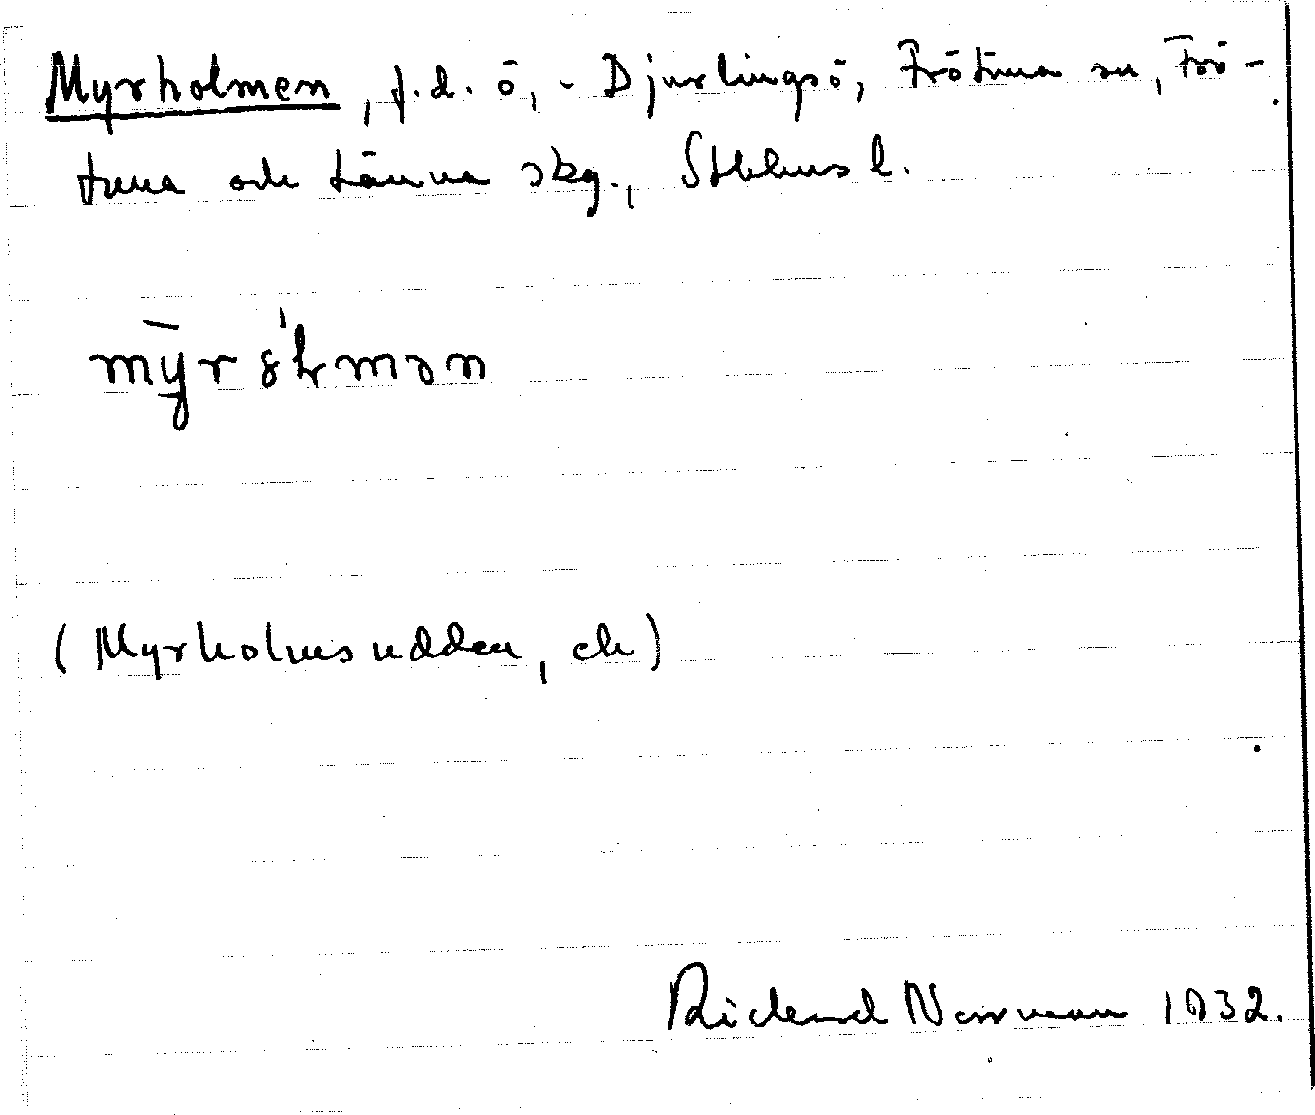 Myrholmen, f.d. ö, - Djurlingsö, Frötuna sn, Frö-
tuna och Länna skg., Sthlms l.
(Myrholmsudden, ek)
Richard Norrman 1932.